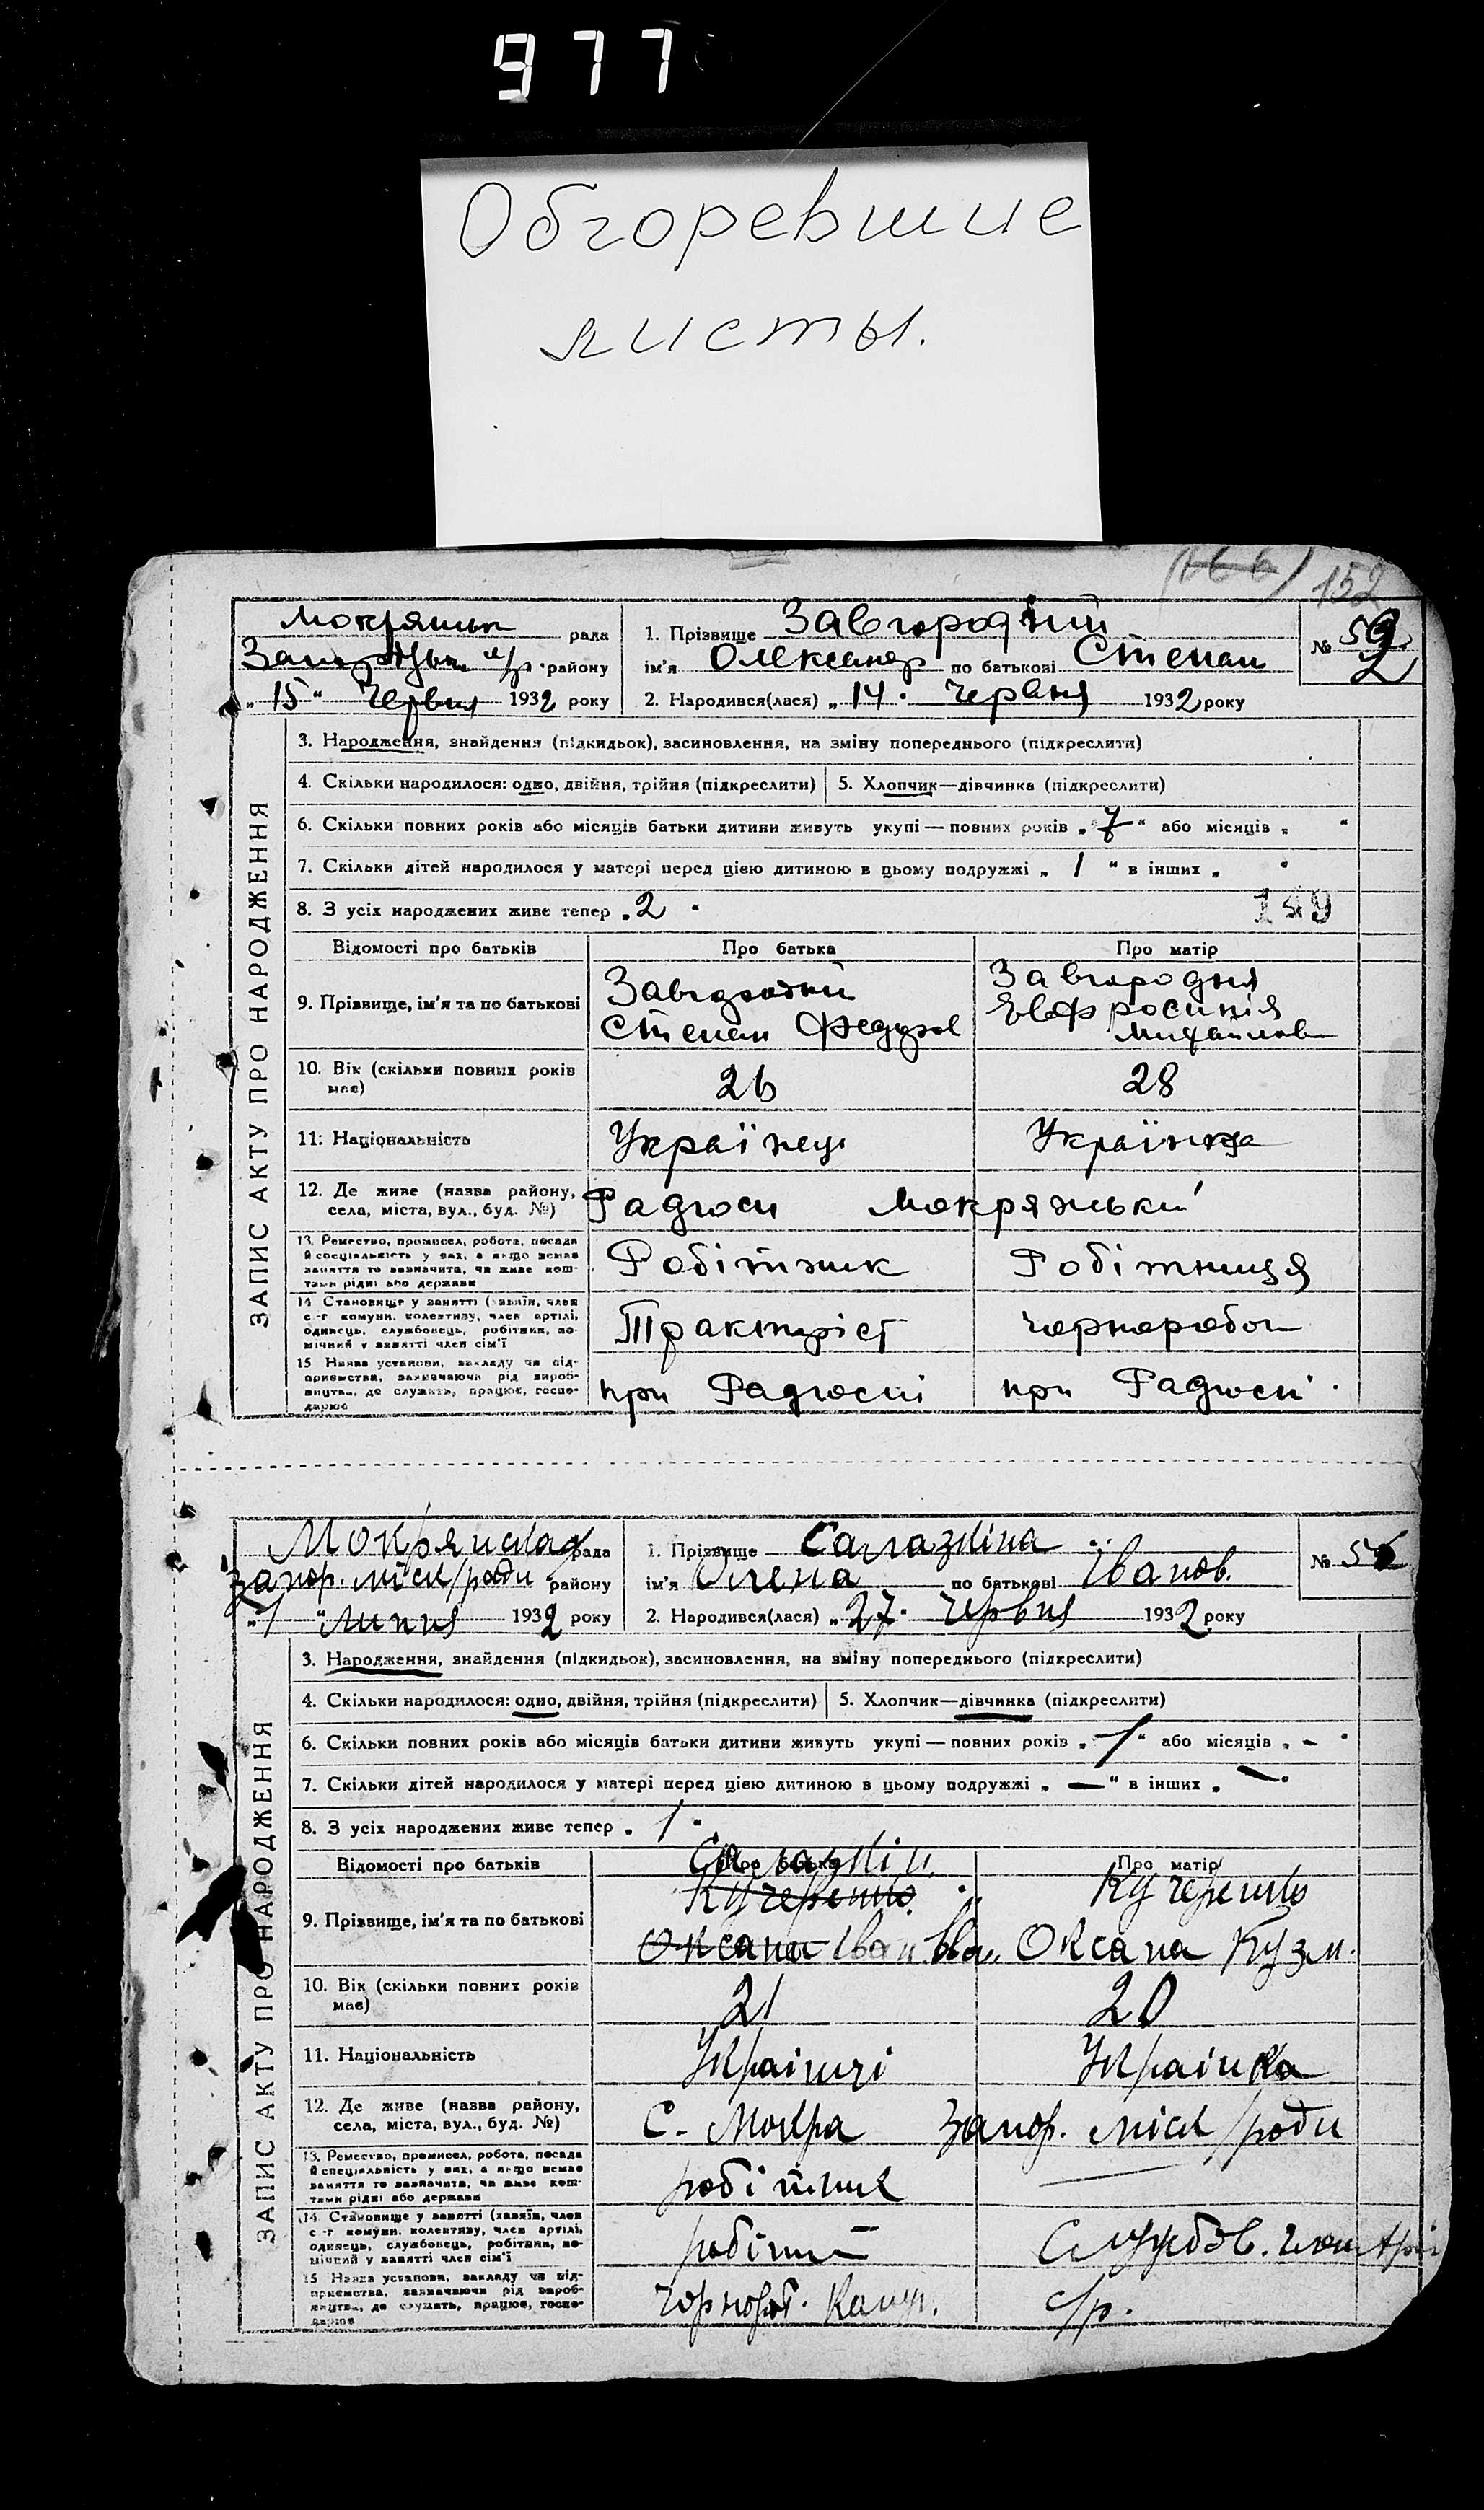 977
Обгоревшие
листы.
152
Мокрянськ рада
району
„ 15 “ Червня 1932 року
1. Прізвище Завгородній
ім'я Олександр по батькові Степан
2. Народився(лася) „ 14 “ Червня 1932 року
№
ЗАПИС АКТУ ПРО НАРОДЖЕННЯ
3. Народження, знайдення (підкидьок), засиновлення, на зміну попереднього (підкреслити)
4. Скільки народилося: одно, двійня, трійня (підкреслити) 5. Хлопчик—дівчинка (підкреслити)
6. Скільки повних років або місяців батьки дитини живуть укупі — повних років „ 7 “ або місяців „ “
7. Скільки дітей народилося у матері перед цією дитиною в цьому подружжі „ 1 “ в інших „ “
8. З усіх народжених живе тепер „ 2 “
149
Відомості про батьків Про батька Про матір
9. Прізвище, ім'я та по батькові
Завгородній
Степан Федоров
Завгородня
Євфросинія
Михайлов
10. Вік (скільки повних років має) 26 28
11. Національність Українец Українка
12. Де живе (назва району, села, міста, вул., буд. №) Радгосп Мокрянський
13. Ремество, промисел, робота, посада
й спеціяльність у них, а якщо немає
заняття то зазначити, чи живе кош-
тами рідні або держави
Робітник Робітниця
14. Становище у занятті (хазяїн, член
с-г комуни, колективу, член артілі,
одинець, службовець, робітник, по-
мічний у занятті член сім'ї
Тракторіст чорнороboч
15. Назва установи, закладу чи під-
приємства, зазначаючи рід вироб-
ництва, де служить, працює, госпо-
дарює
при Радгоспі при Радгоспі
Мокрянська рада
Запор. міськ/ради району
„ 1 “ Липня 1932 року
1. Прізвище Салазкіна
ім'я Олена по батькові Іванов.
2. Народився(лася) „ 27 “ Червня 1932 року
№
ЗАПИС АКТУ ПРО НАРОДЖЕННЯ
3. Народження, знайдення (підкидьок), засиновлення, на зміну попереднього (підкреслити)
4. Скільки народилося: одно, двійня, трійня (підкреслити) 5. Хлопчик—дівчинка (підкреслити)
6. Скільки повних років або місяців батьки дитини живуть укупі — повних років „ 1 “ або місяців „ – “
7. Скільки дітей народилося у матері перед цією дитиною в цьому подружжі „ — “ в інших „ — “
8. З усіх народжених живе тепер „ 1 “
Відомості про батьків Про батька Про матір
9. Прізвище, ім'я та по батькові
Салазкін
Кучеренко
Оксана Іван Іван.
Кучеренко
Оксана Кузм.
10. Вік (скільки повних років має) 21 20
11. Національність Українці Українка
12. Де живе (назва району, села, міста, вул., буд. №) С. Мокра Запор. міськ/ради
13. Ремество, промисел, робота, посада
й спеціяльність у них, а якщо немає
заняття то зазначити, чи живе кош-
тами рідні або держави
робітник
14. Становище у занятті (хазяїн, член
с-г комуни, колективу, член артілі,
одинець, службовець, робітник, по-
мічний у занятті член сім'ї
Службов.
15. Назва установи, закладу чи під-
приємства, зазначаючи рід вироб-
ництва, де служить, працює, госпо-
дарює
чорнороб. с/р.